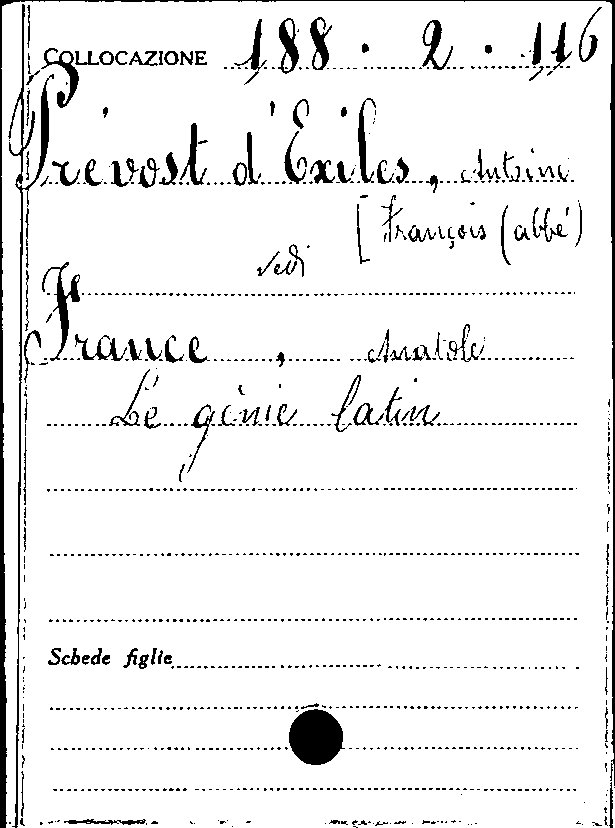 COLLOCAZIONE 188 . 2 . 116
Prévost d'Exiles, Antoine
[François (abbé)
vedi
France, Anatole
Le génie latin
Schede figlie